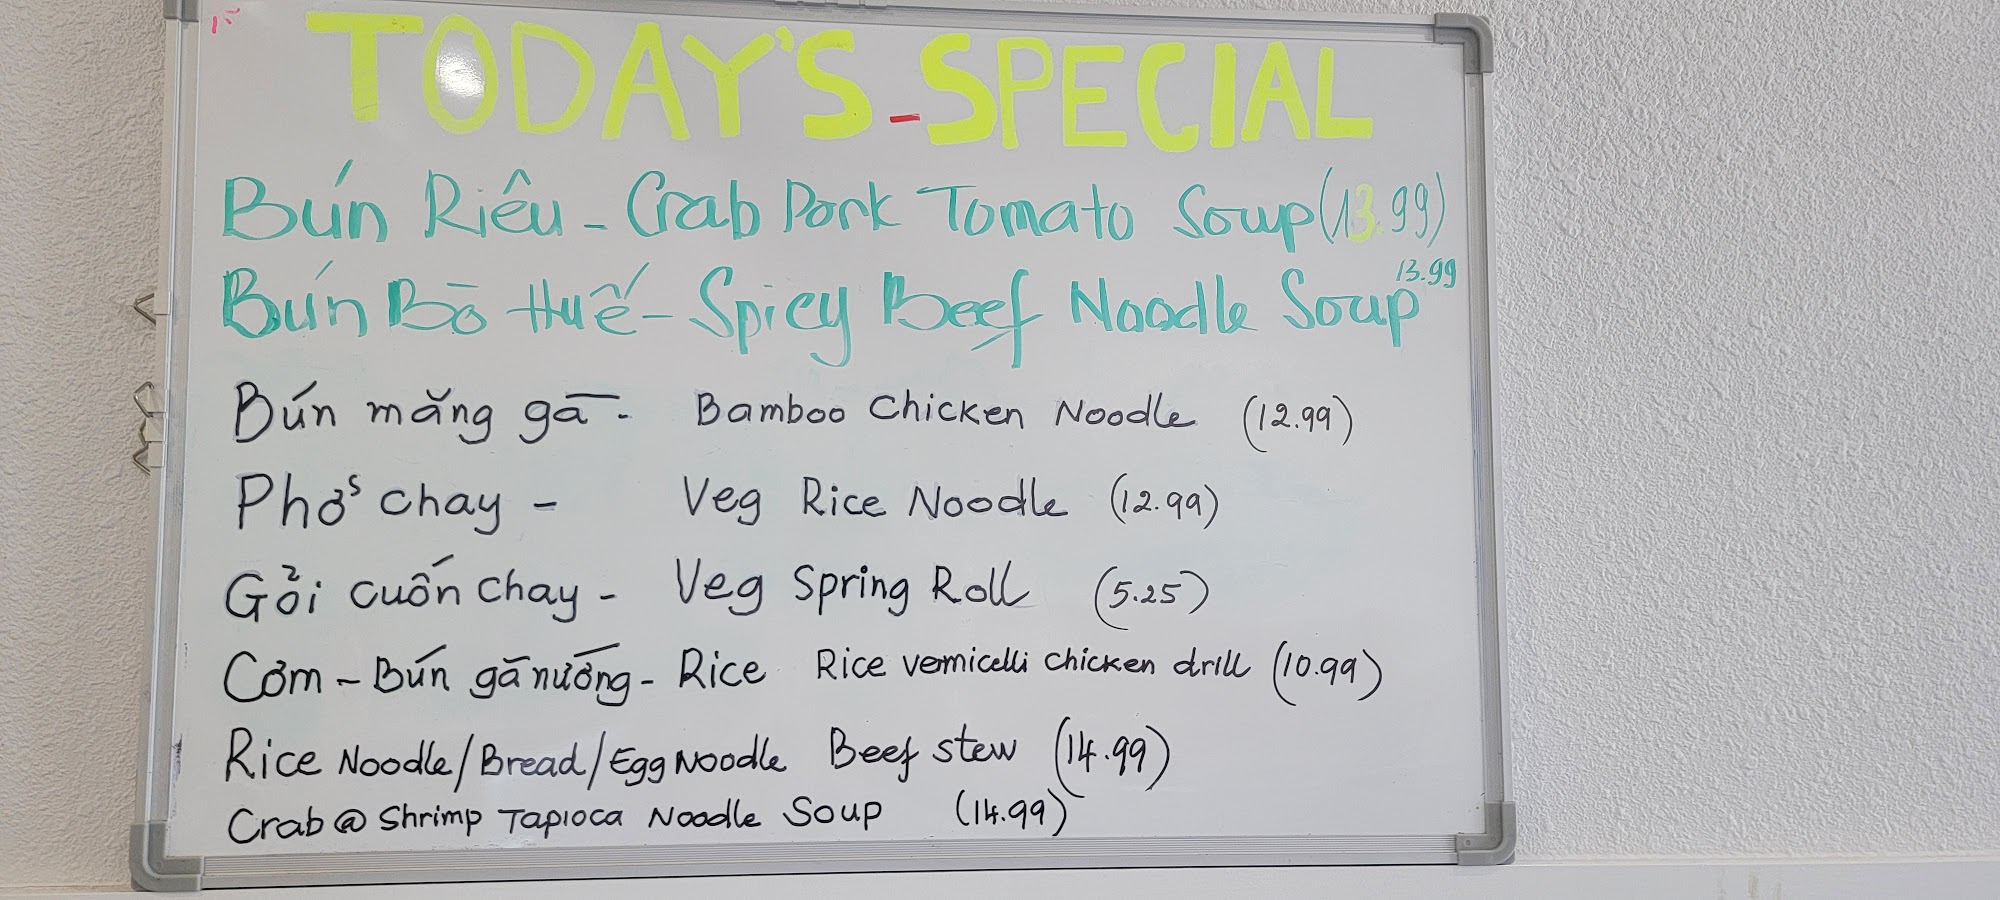 TODAY'S - SPECIAL
Bún Riêu - Crab Pork Tomato Soup (13.99)
Bún Bò Huế - Spicy Beef Noodle Soup 13.99
Bún măng gà - Bamboo Chicken Noodle (12.99)
Phở chay - Veg Rice Noodle (12.99)
Gỏi cuốn chay - Veg Spring Roll (5.25)
Cơm - Bún gà nướng - Rice Rice vermicelli chicken drill (10.99)
Rice Noodle/Bread/Egg Noodle Beef stew (14.99)
Crab @ Shrimp Tapioca Noodle Soup (14.99)